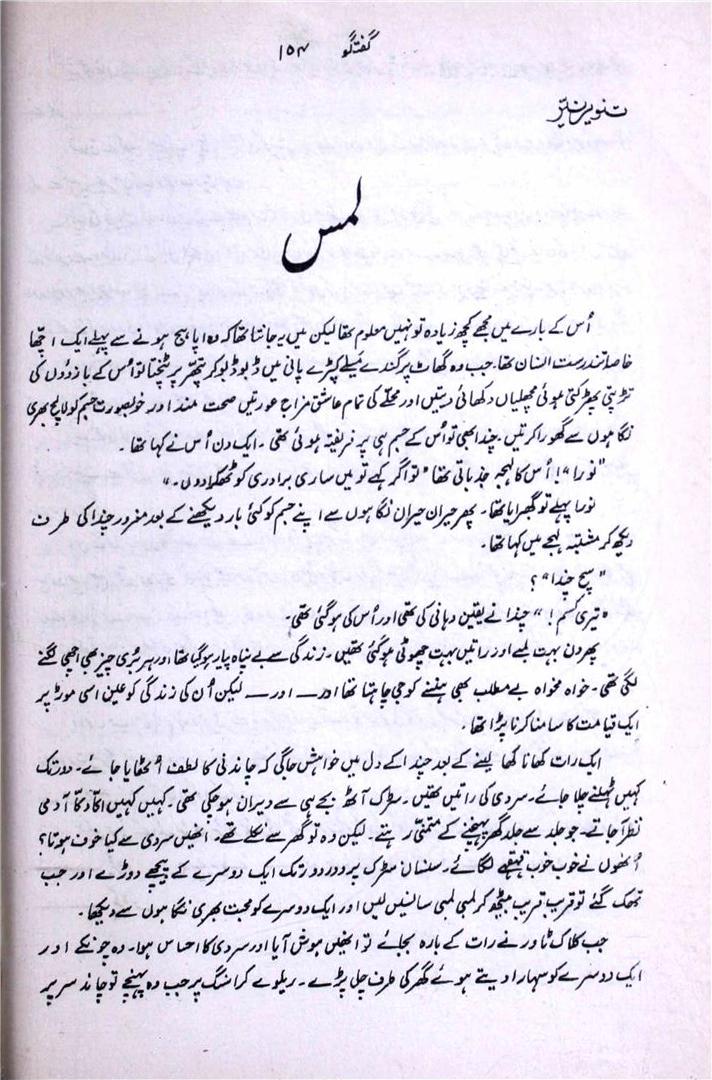 گفتگو ۱۵۴
تنویر نیّر
لمس
اُس کے بارے میں مجھے کچھ زیادہ تو نہیں معلوم تھا لیکن میں یہ جانتا تھا کہ وہ اپاہج ہونے سے پہلے ایک اچھا
خاصا تندرست انسان تھا۔ جب وہ گھاٹ پر گندے میلے کپڑے پانی میں ڈبو ڈبو کر پتھر پر پٹختا تو اُس کے بازوؤں کی
تڑپتی پھڑکتی ہوئی مچھلیاں دکھائی دیتیں اور محلّے کی تمام عاشق مزاج عورتیں صحت مند اور خوبصورت جسم کو لالچ بھری
نگاہوں سے گھورا کرتیں۔ چندا بھی تو اُس کے جسم ہی پر فریفتہ ہوئی تھی۔ ایک دن اُس نے کہا تھا۔
"نورا"! اُس کا لہجہ جذباتی تھا "تو اگر کہے تو میں ساری برادری کو ٹھکرا دوں۔"
نورا پہلے تو گھبرایا تھا۔ پھر حیران حیران نگاہوں سے اپنے جسم کو کئی بار دیکھنے کے بعد مغرور چندا کی طرف
دیکھ کر مشتبہ لہجے میں کہا تھا۔
"سچ چندا"؟
"تیری قسم!" چندا نے یقین دہانی کی تھی اور اُس کی ہو گئی تھی۔
پھر دن بہت لمبے اور راتیں بہت چھوٹی ہو گئی تھیں۔ زندگی سے بے پناہ پیار ہو گیا تھا اور ہر بُری چیز بھی اچھی لگنے
لگی تھی۔ خواہ مخواہ بے مطلب بھی ہنسنے کو جی چاہتا تھا اور — اور — لیکن اُن کی زندگی کو عین اسی موڑ پر
ایک قیامت کا سامنا کرنا پڑا تھا۔
ایک رات کھانا کھا لینے کے بعد چندا کے دل میں خواہش جاگی کہ چاندنی کا لطف اُٹھایا جائے۔ دور تک
کہیں ٹہلنے چلا جائے۔ سردی کی راتیں تھیں۔ سڑک آٹھ بجے ہی سے ویران ہو چکی تھی۔ کہیں کہیں اکّا دکّا آدمی
نظر آجاتے۔ جو جلد سے جلد گھر پہنچنے کے متمنّی رہتے۔ لیکن وہ تو گھر سے نکلے تھے۔ انھیں سردی سے کیا خوف ہوتا؟
اُنھوں نے خوب خوب قہقہے لگائے۔ سنسان سڑک پر دور دور تک ایک دوسرے کے پیچھے دوڑے اور جب
تھک گئے تو قریب قریب بیٹھ کر لمبی لمبی سانسیں لیں اور ایک دوسرے کو محبت بھری نگاہوں سے دیکھا۔
جب کلاک ٹاور نے رات کے بارہ بجائے تو انھیں ہوش آیا اور سردی کا احساس ہوا۔ وہ چونکے اور
ایک دوسرے کو سہارا دیتے ہوئے گھر کی طرف چل پڑے۔ ریلوے کراسنگ پر جب وہ پہنچے تو چاند سر پر